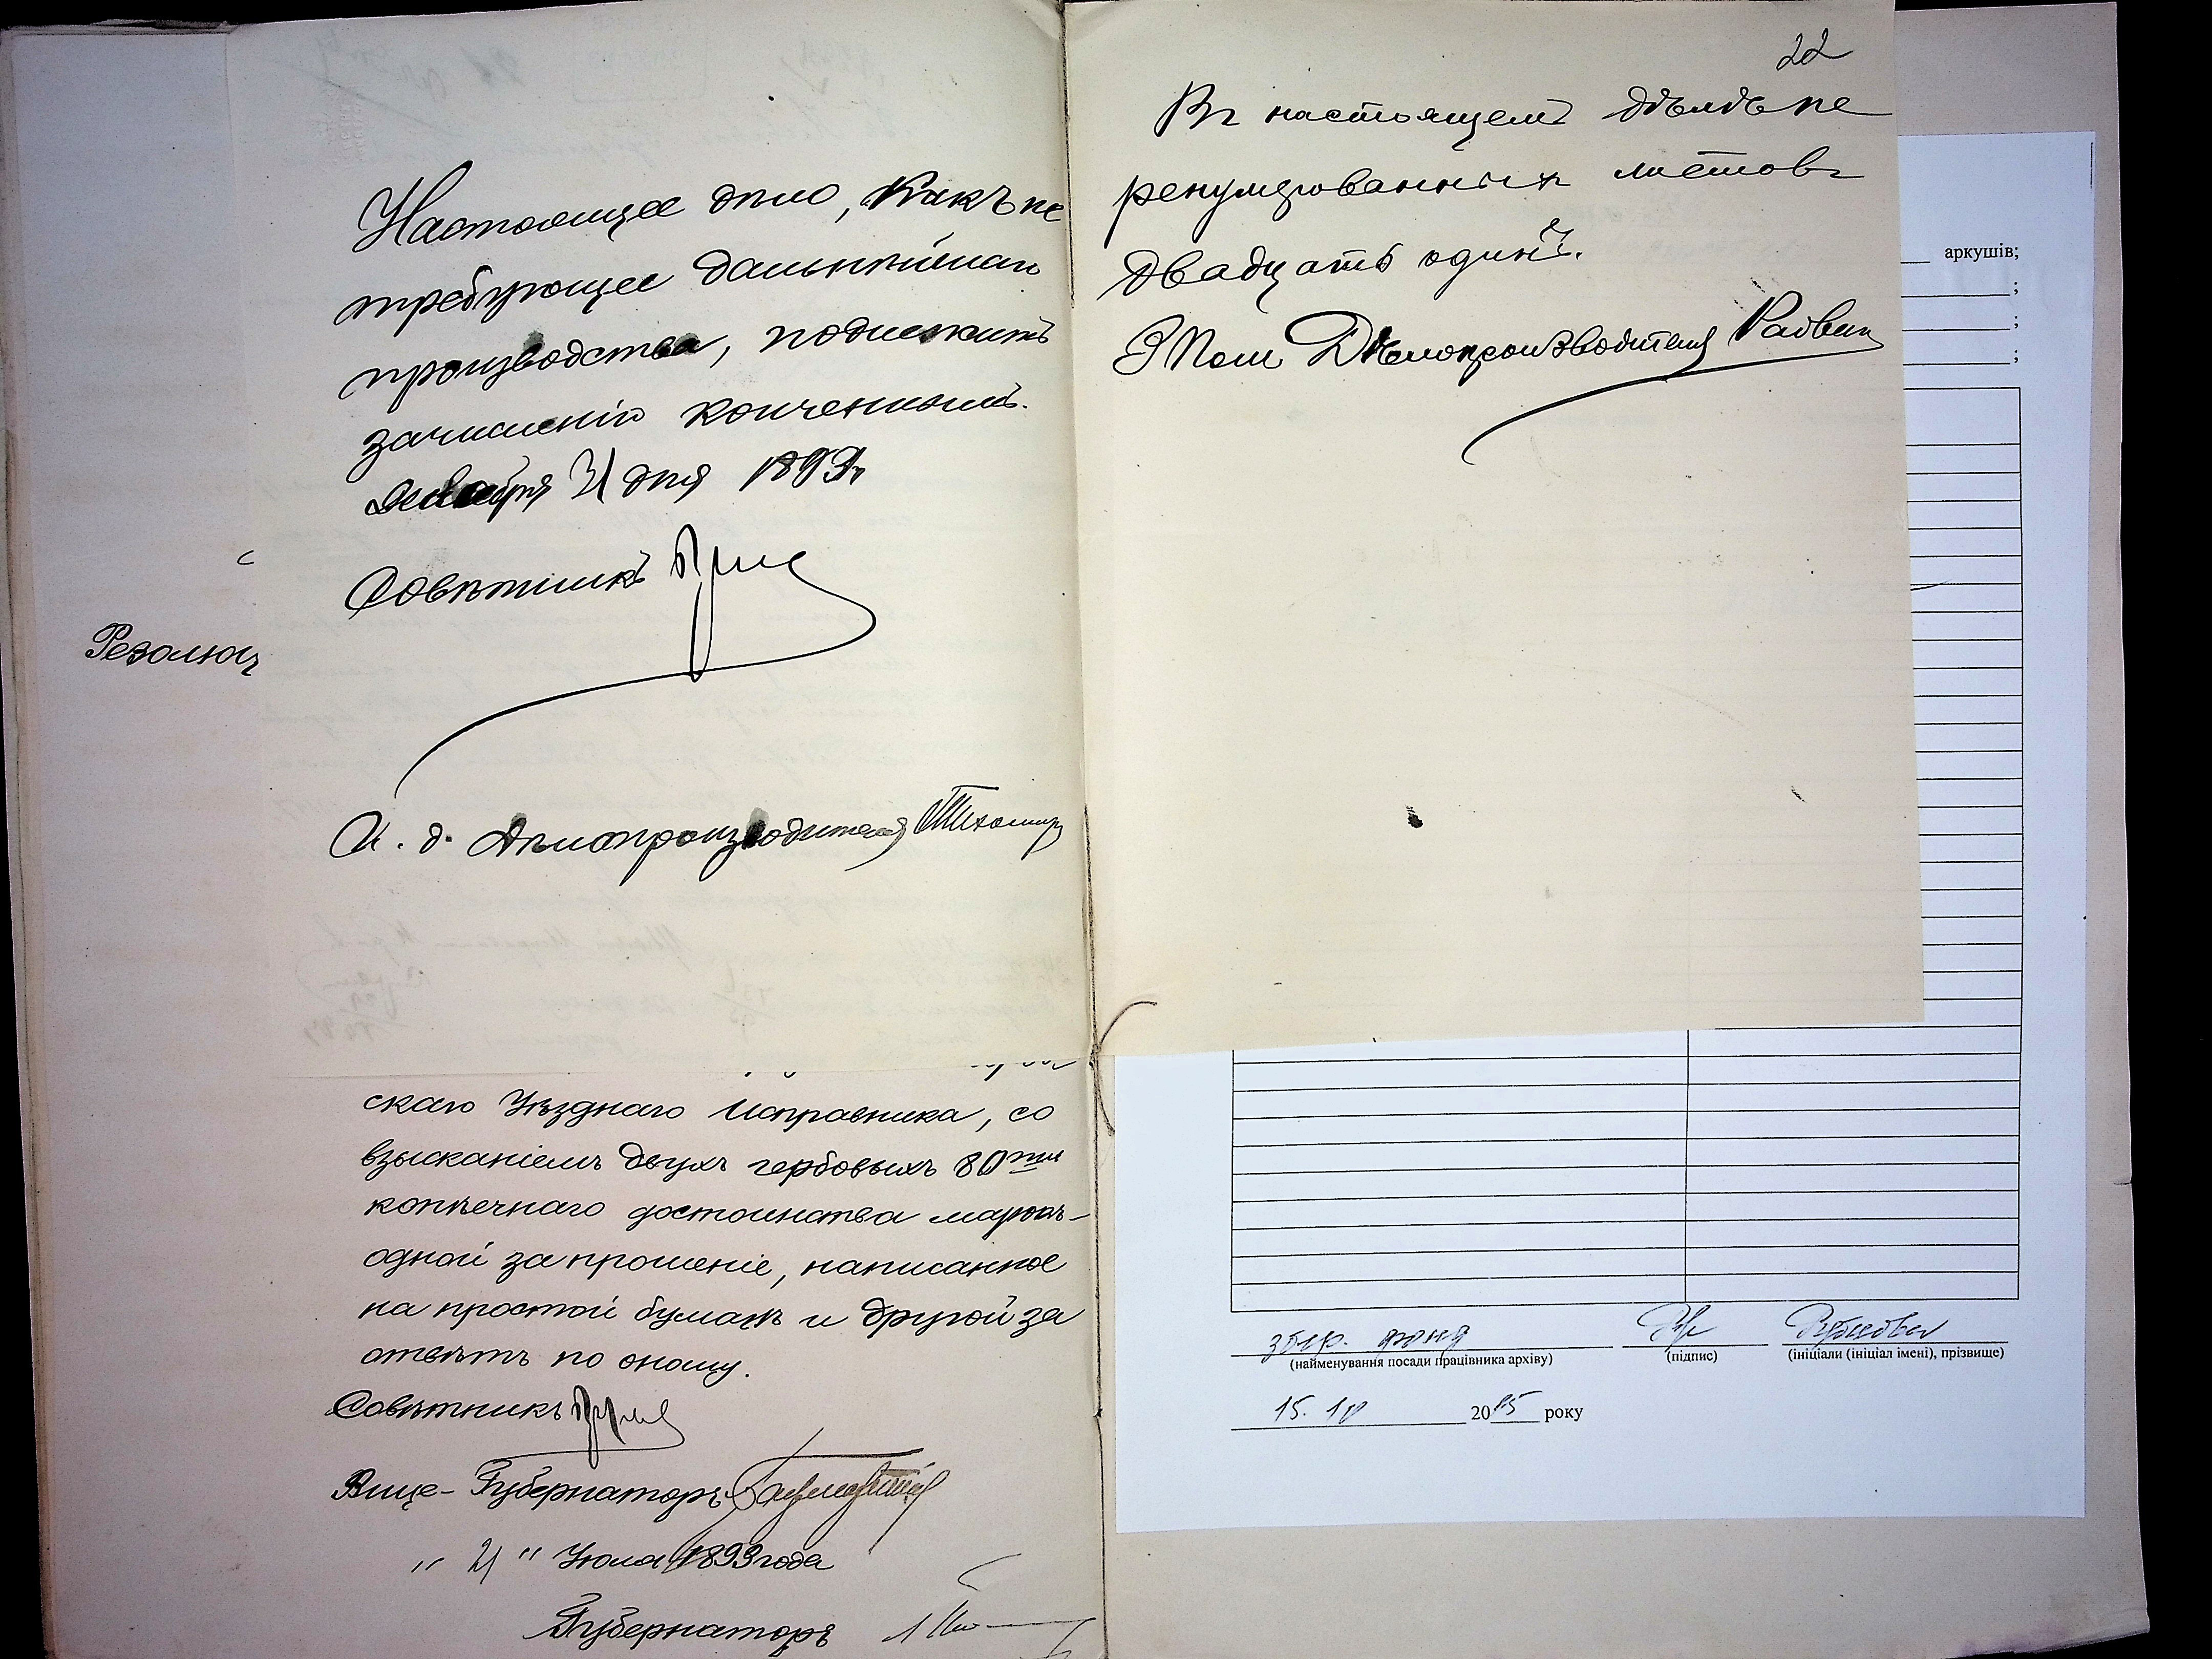 Настоящее дѣло, какъ не
требующее дальнѣйшаго
производства, подлежитъ
зачисленію конченнымъ.
31 дня 1893 г
Совѣтникъ
И. д. Дѣлопроизводителя
Резолюц
скаго Уѣзднаго Исправника, со
взысканіемъ двухъ гербовыхъ 80ти
копѣечнаго достоинства марокъ-
одной за прошеніе, написанное
на простой бумагѣ и другой за
отвѣтъ по оному.
Совѣтникъ
Вице-Губернаторъ
" 21 " Іюля 1893 года
Губернаторъ
22
Въ настоящемъ дѣлѣ пе
ренумерованныхъ листовъ
двадцать одинъ.
Дѣлопроизводителя
аркушів;
;
;
;
(найменування посади працівника архіву)
(підпис)
(ініціали (ініціал імені), прізвище)
15. 20 року